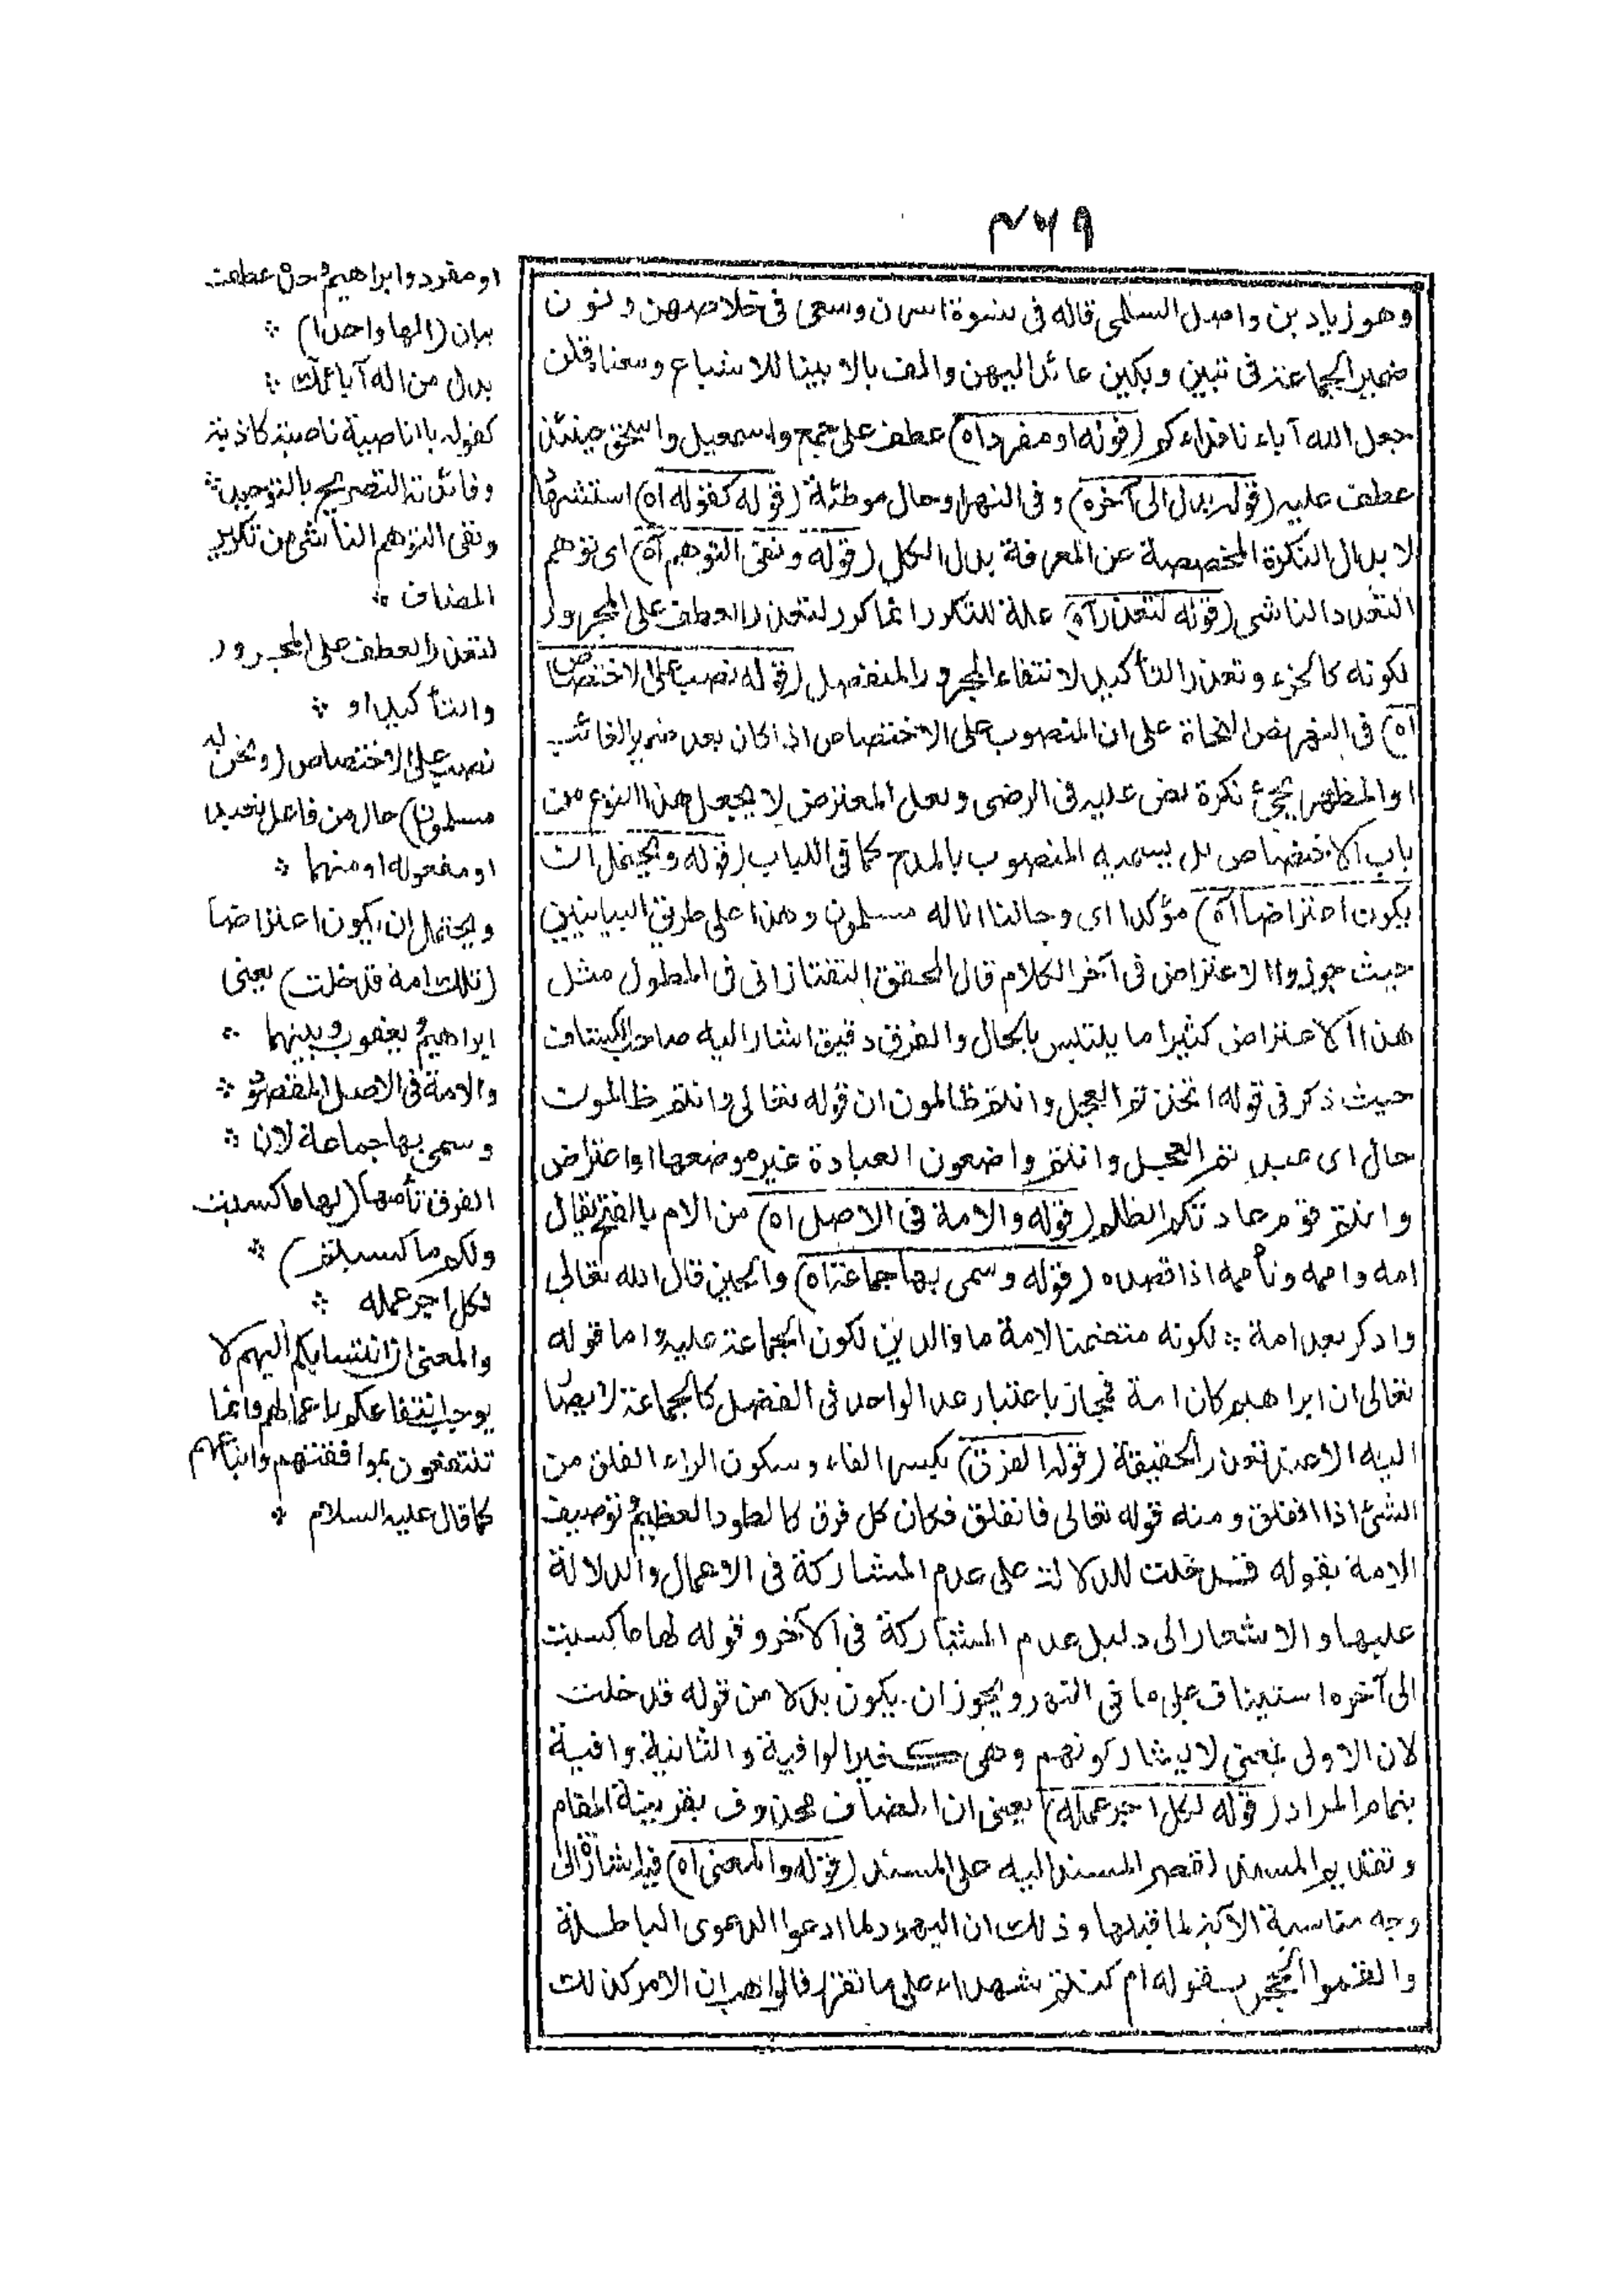 ٤٦٩
وهو زياد بن واصل السلمى قاله فى نسوة اسرن وسعى فى خلاصهن ونون
ضمير الجماعة فى تبين وبكين عائد اليهن والف بالابينا للاشباع ومعناه قلن
جعل الله آباء نا فداءكم (قوله او مفرد اه) عطف على جمع واسمعيل واسحٰق حينئذ
عطف عليه (قوله بدل الى آخره) وفى النهر او حال موطئة (قوله كقوله اه) استشهاد
لا بدال النكرة المخصصة عن المعرفة بدل الكل (قوله ونفى التوهم آه) اى توهم
التعدد الناشى (قوله لتعذر آه) علة للتكرر انما كرر لتعذر العطف على المجرور
لكونه كالجزء وتعذر التأكيد لانتفاء المجرور المنفصل (قوله نصب على الاختصاص
اه) فى النهر نص النحاة على ان المنصوب على الاختصاص اذا كان بعد ضمير الغائب
او المظهر لا يجئ نكرة نص عليه فى الرضى ولعل المعترض لا يجعل هذا النوع من
باب الاختصاص بل يسميه المنصوب بالمدح كما فى اللباب (قوله ويحتمل ان
يكون اعتراضا آه) مؤكدا اى وحالنا انا له مسلمون وهذا على طريق البيانيين
حيث جوزوا الاعتراض فى آخر الكلام قال المحقق التفتازانى فى المطول مثل
هذا الاعتراض كثيرا ما يلتبس بالحال والفرق دقيق اشار اليه صاحب الكشاف
حيث ذكر فى قوله اتخذتم العجل وانتم ظالمون ان قوله تعالى وانتم ظالمون
حال اى عبدتم العجل وانتم واضعون العبادة غير موضعها او اعتراض
وانتم قوم عادتكم الظلم (قوله والامة فى الاصل اه) من الام بالفتح يقال
امه وامه وتأمه اذا قصده (قوله وسمى بها جماعة اه) والحين قال الله تعالى
وادكر بعد امة ؞ لكونه متضمنا لامة ما والدين لكون الجماعة عليه واما قوله
تعالى ان ابراهيم كان امة فمجاز باعتبار عد الواحد فى الفضل كالجماعة لا يصار
اليه الا عند تعذر الحقيقة (قوله الفرق) بكسر الفاء وسكون الراء الفلق من
الشئ اذا انفلق ومنه قوله تعالى فانفلق فكان كل فرق كالطود العظيم وتوصيف
الامة بقوله قد خلت للدلالة على عدم المشاركة فى الاعمال والدلالة
عليها والاشعار الى دليل عدم المشتاركة فى الآخر وقوله لها ما كسبت
الى آخره استيناف على ما فى النهر ويجوز ان يكون بدلا من قوله قد خلت
لان الاولى بمعنى لا يشاركونهم وهى غير الوافية والثانية وافية
بتمام المراد (قوله لكل اجر عمله) يعنى ان المضاف محذوف بقرينة المقام
وتقديم المسند لقصر المسند اليه على المسند (قوله والمعنى اه) فيه اشارة الى
وجه مناسبة الآية لما قبلها وذلك ان اليهود لما ادعوا الدعوى الباطلة
والقموا الحجر بقوله ام كنتم شهداء على ما تقرر قالوا هب ان الامر كذلك
او مفرد وابراهيم وحده عطف
بيان (الها واحدا) ؞
بدل من اله آبائك ؞
كقوله بالناصية ناصية كاذبة
وفائدته التصريح بالتوحيد ؞
ونفى التوهم الناشئ من تكرير
المضاف ؞
لتعذر العطف على المجرور
والتأكيد او ؞
نصب على الاختصاص (ونحن له
مسلمون) حال من فاعل نعبد
او مفعوله او منهما ؞
ويحتمل ان يكون اعتراضا
(تلك امة قد خلت) يعنى
ابراهيم ويعقوب وبنيهما ؞
والامة فى الاصل المقصود ؞
وسمى بها جماعة لان ؞
الفرق تأمها (لها ما كسبت
ولكم ما كسبتم) ؞
لكل اجر عمله ؞
والمعنى ان انتسابكم اليهم لا
يوجب انتفاعكم باعمالهم وانما
تنتفعون بموافقتهم واتباعهم
كما قال عليه السلام ؞